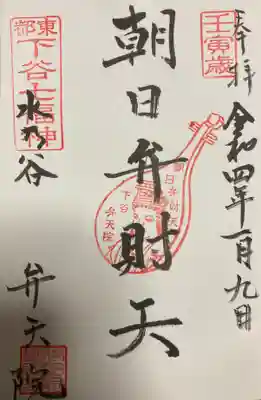 奉拝
令和四年一月九日
壬寅歳
朝日弁財天
朝日弁財天
下谷
弁天院
東都
下谷七福神
水の谷
弁天院